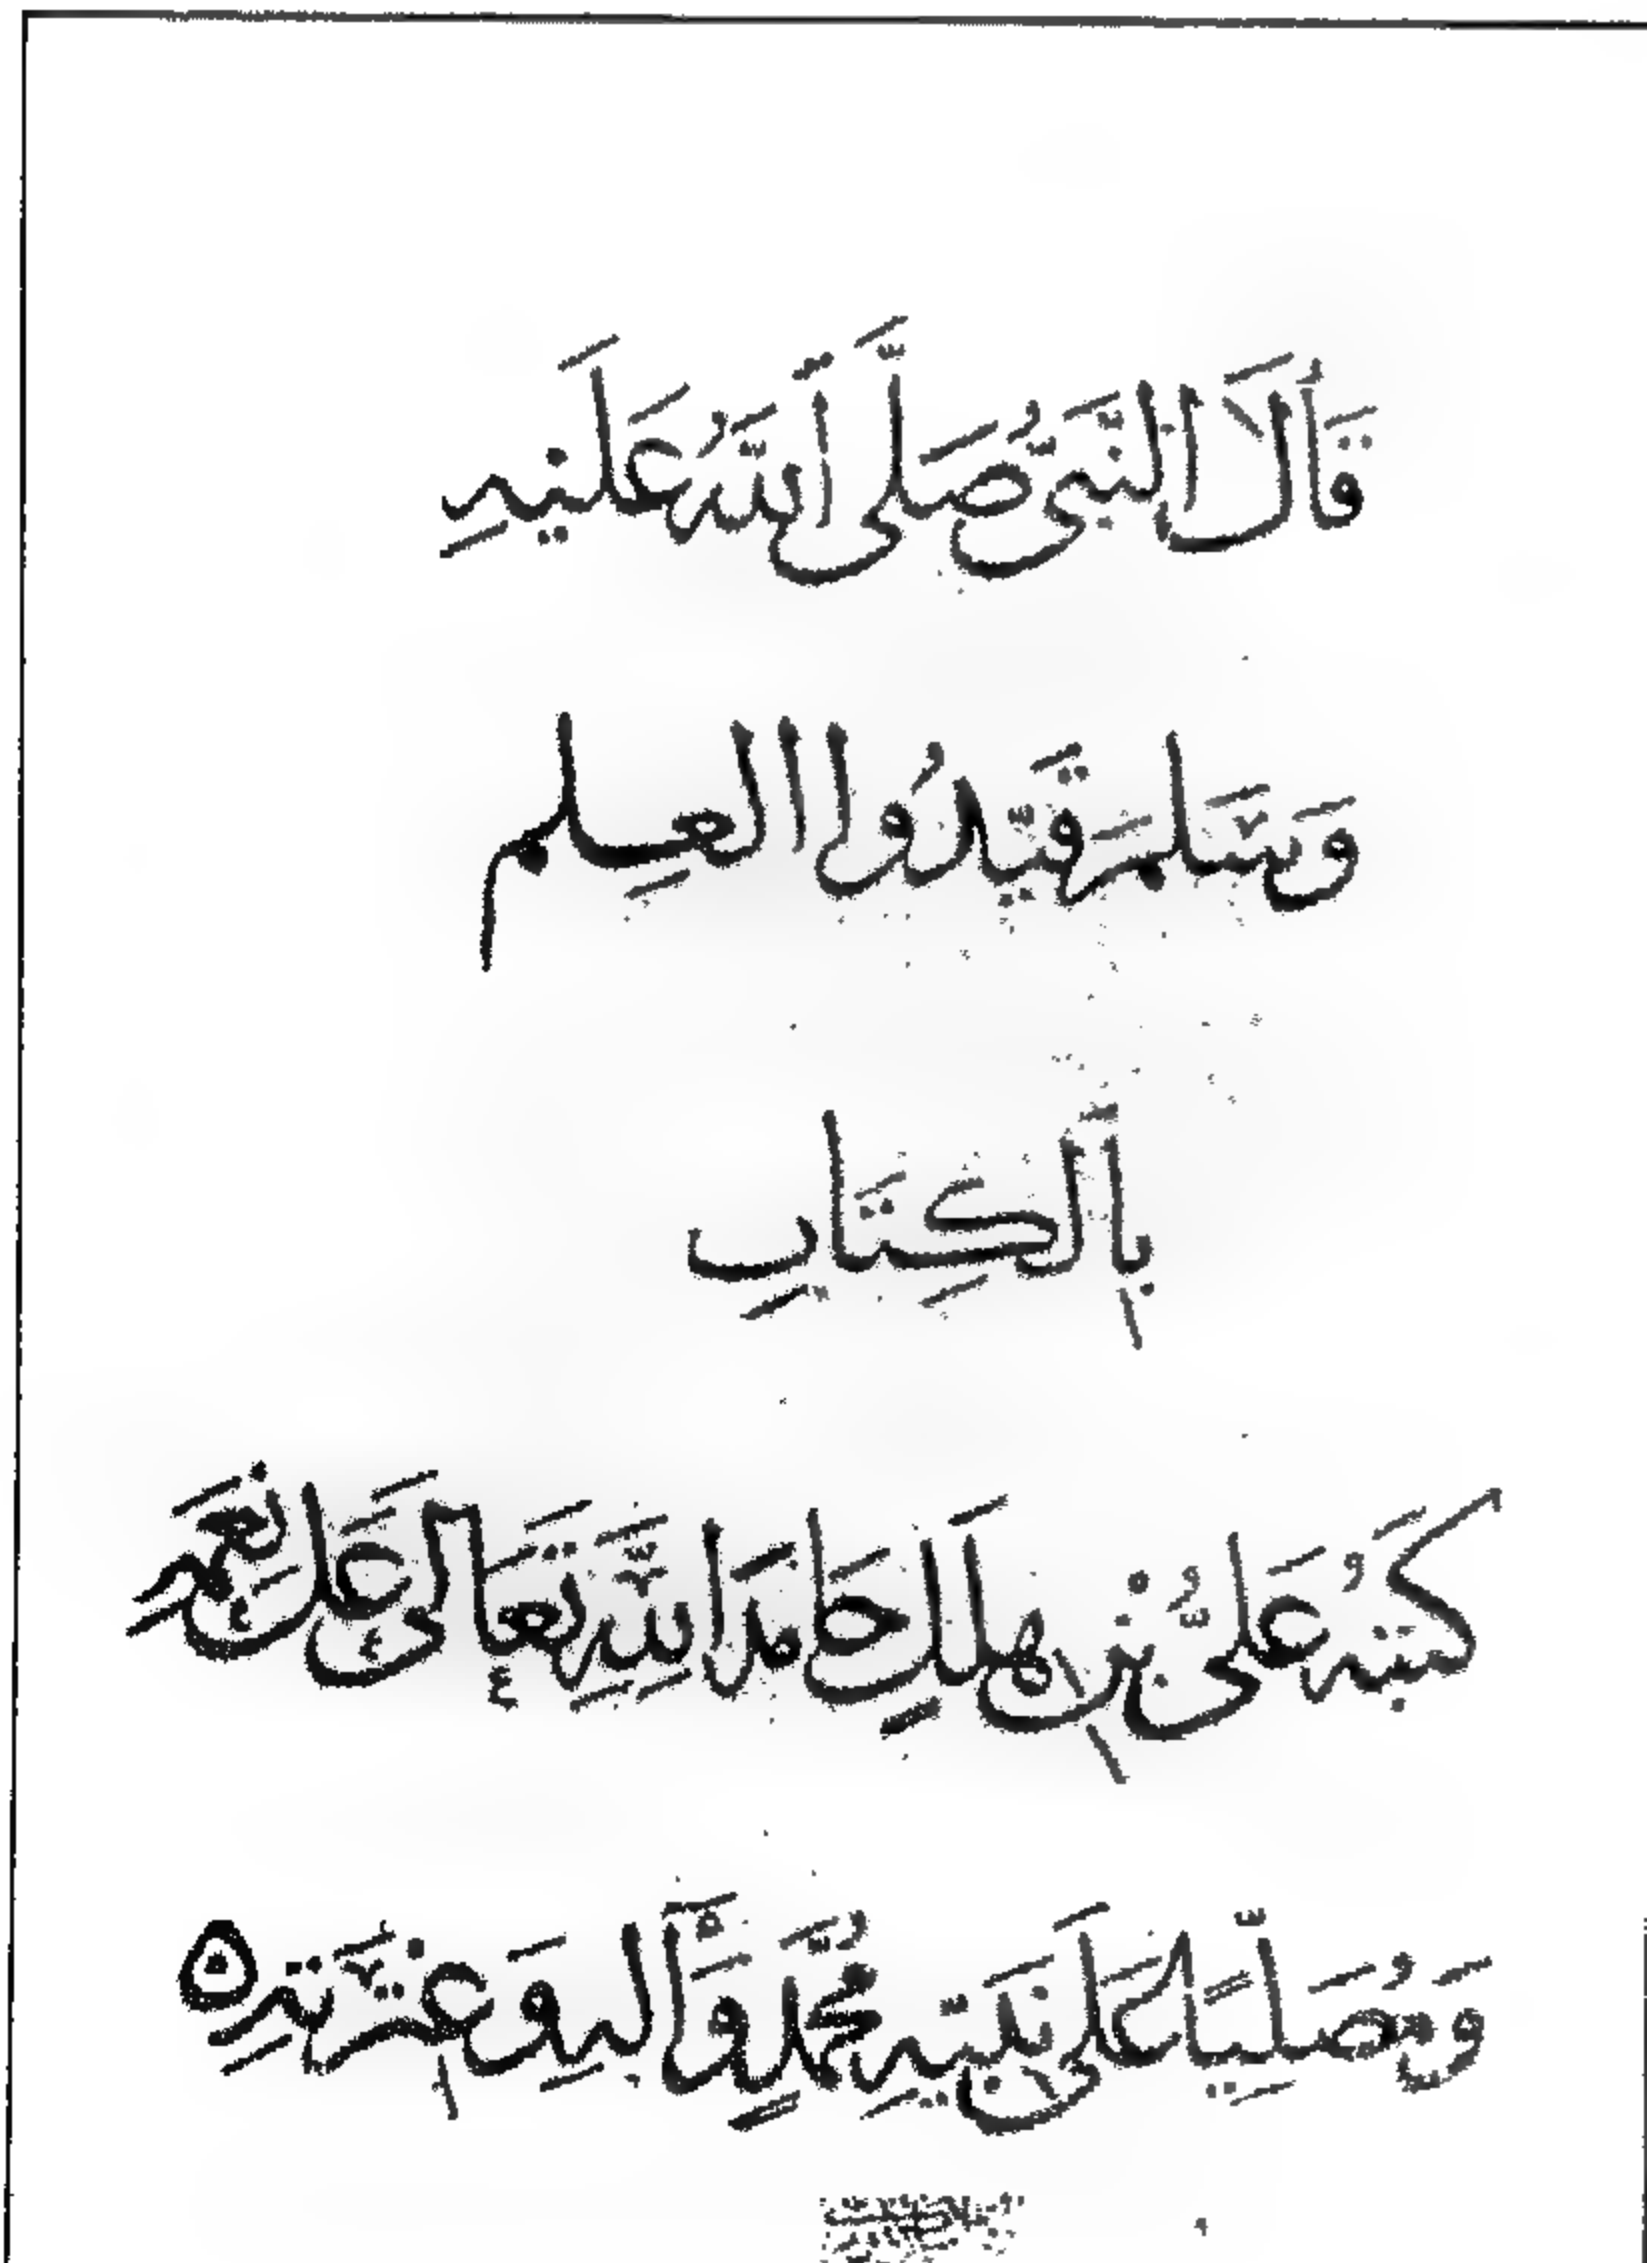 قَالَ النَّبِيُّ صَلَّى اَللَّهُ عَلَيْهِ
وَسَلمَ قَيِّدُوا العِلم
بِالكِتَابِ
كَتَبَهُ عَلىُّ بْنِ هِلَلٍ حَامِدًا لِلَّهِ تَعَالَى عَلَى نِعَمِهِ
وَمُصَلِّيًا عَلَى نَبِيِّهِ مُحَمَّدٍ وَآلِهِ وَعِتْرَتِهِ